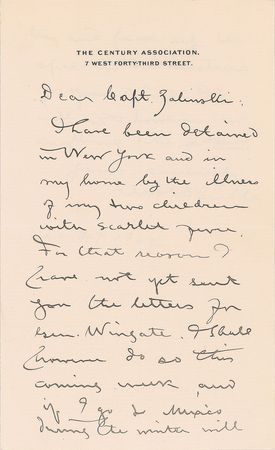 THE CENTURY ASSOCIATION,
7 WEST FORTY-THIRD STREET.
Dear Capt. Zalinski:
I have been detained
in New York and in
my home by the illness
of my two children
with scarlet fever.
For that reason I
have not yet sent
you the letters for
Gen. Wingate. I shall
however do so this
coming week and
if I go to Mexico
during the winter will